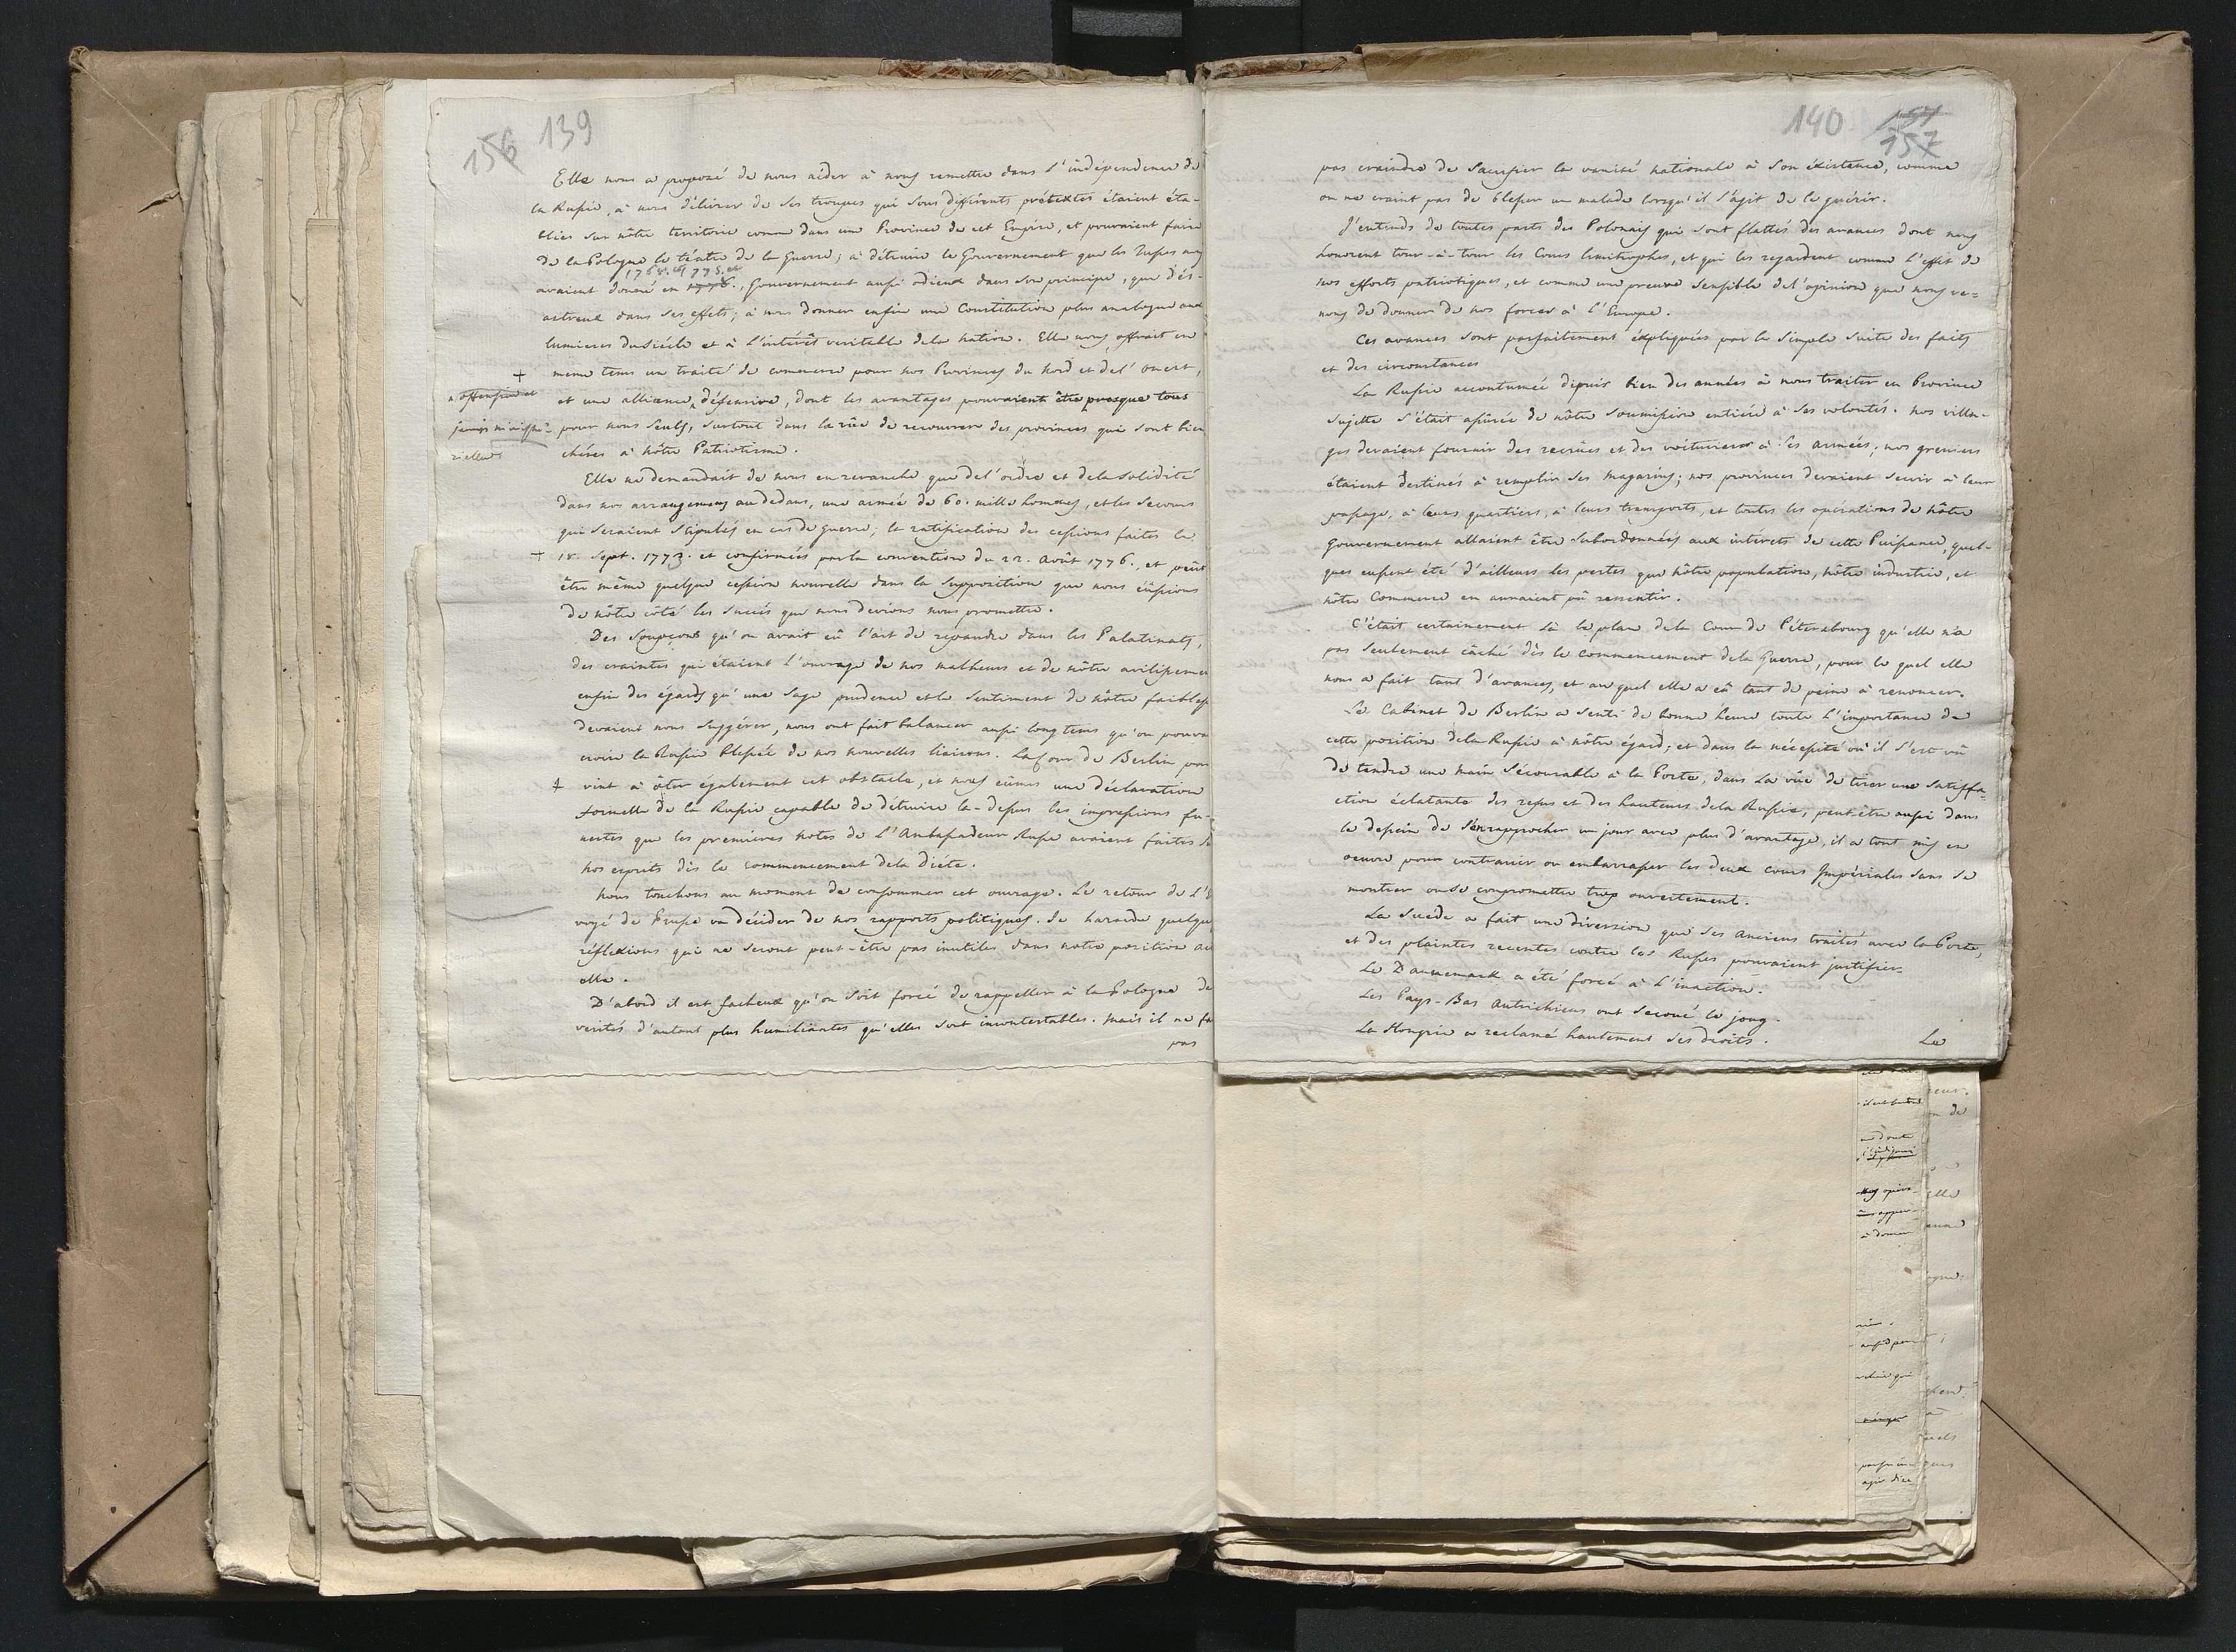 156 139
Elle nous a proposé de nous aider à nous remettre dans l'indépendence de
la Russie, à nous délivrer de ses troupes qui sous différents prétextes étaient éta-
blies sur nôtre territoire comme dans une Province de cet Empire, et pouvaient faire
de la Pologne le téatre de la Guerre; à détruire le Gouvernement que les Russes nous
1768. et 1775. et
avaient donné en 1776., Gouvernement aussi odieux dans son principe, que dés-
astreux dans ses effets; à nous donner enfin une Constitution plus analogue aux
lumieres du siécle et à l'intérêt veritable dela nation. Elle nous offrait en
meme tems un traité de commerce pour nos Provinces du Nord et del'ouest,
+
et une alliance défensive, dont les avantages pouvaient être presque tous
n offensive et
pour nous seuls, surtout dans la vûe de recouvrer des provinces qui sont bien
jamais ministé-
rielles
chéres à nôtre Patriotisme.
Elle ne demandait de nous en revanche que del'ordre et dela solidité
dans nos arrangemens audedans, une armée de 60. mille hommes, et les secours
qui seraient stipulés en cas de guerre; la ratification des cessions faites le
+ 18. Sept. 1773. et confirmées par la convention du 22. Août 1776., et peut
être même quelque cession nouvelle dans la supposition que nous eûssions
de nôtre côté les succés que nous devions nous promettre.
Des soupçons qu'on avait eû l'art de répandre dans les Palatinats,
des craintes qui étaient l'ouvrage de nos malheurs et de nôtre avilisseme
enfin des égards qu'une sage prudence et le sentiment de nôtre faibless
devaient nous suggérer, nous ont fait balancer aussi long tems qu'on pouva
croire la Russie blessée de nos nouvelles liaisons. La Cour de Berlin par
+ vint à ôter également cet obstacle, et nous eûmes une déclaration
formelle de la Russie capable de détruire la-dessus les impressions fu-
nestes que les premières notes de l'Ambassadeur Russe avaient faites s
nos esprits dès le commencement dela diéte.
Nous touchons au moment de consommer cet ouvrage. Le retour de l'E
voyé de Prusse va décider de nos rapports politiques. Je hazarde quelque
réflexions qui ne seront peut-être pas inutiles dans notre position ac
elle.
D'abord il est facheux qu'on soit forcé de rappeller à la Pologne de
verités d'autant plus humiliantes qu'elles sont incontestables. Mais il ne fa
pas
140 157
157
pas craindre de sacrifier la vanité nationale à son éxistence, comme
on ne craint pas de blesser un malade lorsqu'il s'agit de le guérir.
J'entends de toutes parts des Polonais qui sont flattés des avances dont nous
honorent tour-à-tour les Cours limitrophes, et qui les regardent comme l'effet de
nos efforts patriotiques, et comme une preuve sensible del'opinion que nous ve=
nons de donner de nos forces à l'Europe.
Ces avances sont parfaitement éxpliquées par la simple suite des faits
et des circonstances
La Russie accoutumée depuis bien des années à nous traiter en Province
sujette s'était assurée de nôtre soumission entiére à ses volontés. Nos villa-
ges devaient fournir des recrües et des voituriers à ses armées; nos greniers
étaient destinés à remplir ses magazins; nos provinces devaient servir à leur
passage, à leurs quartiers, à leurs transports, et toutes les opérations de nôtre
Gouvernement allaient être subordonnées aux interets de cette Puissance, quel-
ques eussent été d'ailleurs les pertes que nôtre population, nôtre industrie, et
nôtre Commerce en auraient pû ressentir.
C'était certainement là le plan dela Cour de Pétersbourg qu'elle n'a
pas seulement câché dès le commencement dela Guerre, pour le quel elle
nous a fait tant d'avances, et au quel elle a eû tant de peine à renoncer.
Le Cabinet de Berlin a senti de bonne heure toute l'importance de
cette position dela Russie à nôtre égard; et dans la nécessité où il s'est vû
de tendre une main sécourable à la Porte, dans la vûe de tirer une satisfa-
ction éclatante des refus et des hauteurs dela Russie, peut-être aussi dans
le dessein de s'en rapprocher un jour avec plus d'avantage, il a tout mis en
oeuvre pour contrarier ou embarrasser les deux cours Impériales sans se
montrer ou se compromettre trop ouvertement.
La Suede a fait une diversion que ses anciens traités avec la Porte,
et des plaintes recentes contre les Russes pouvaient justifier.
Le Dannemark a été forcé à l'inaction.
Les Pays-Bas Autrichiens ont secoué le joug.
La Hongrie a reclamé hautement ses droits.
Le